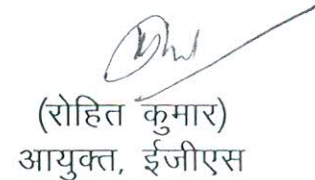 (रोहित कुमार)
आयुक्त, ईजीएस